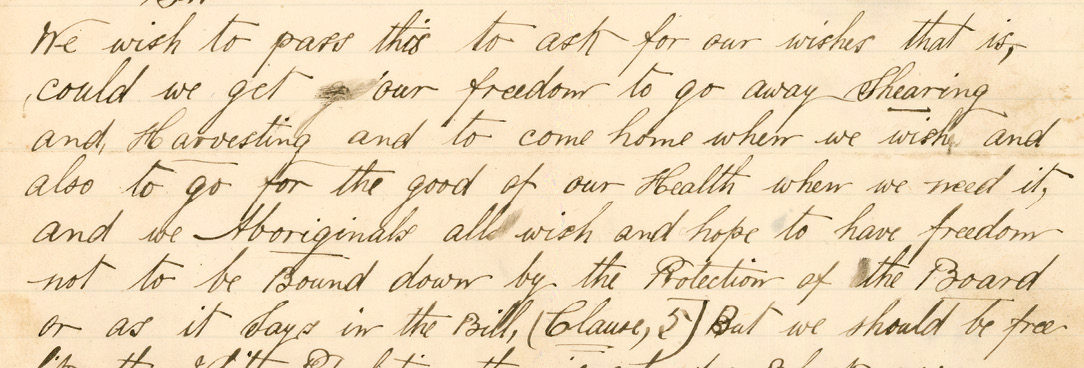 We wish to pass this to ask for our wishes that is,
could we get our freedom to go away Shearing
and, Harvesting and to come home when we wish and
also to go for the good of our Health when we need it,
and we Aboriginals all wish and hope to have freedom
not to be Bound down by the Protection of the Board
or as it Says in the Bill, (Clause, 5) But we should be free